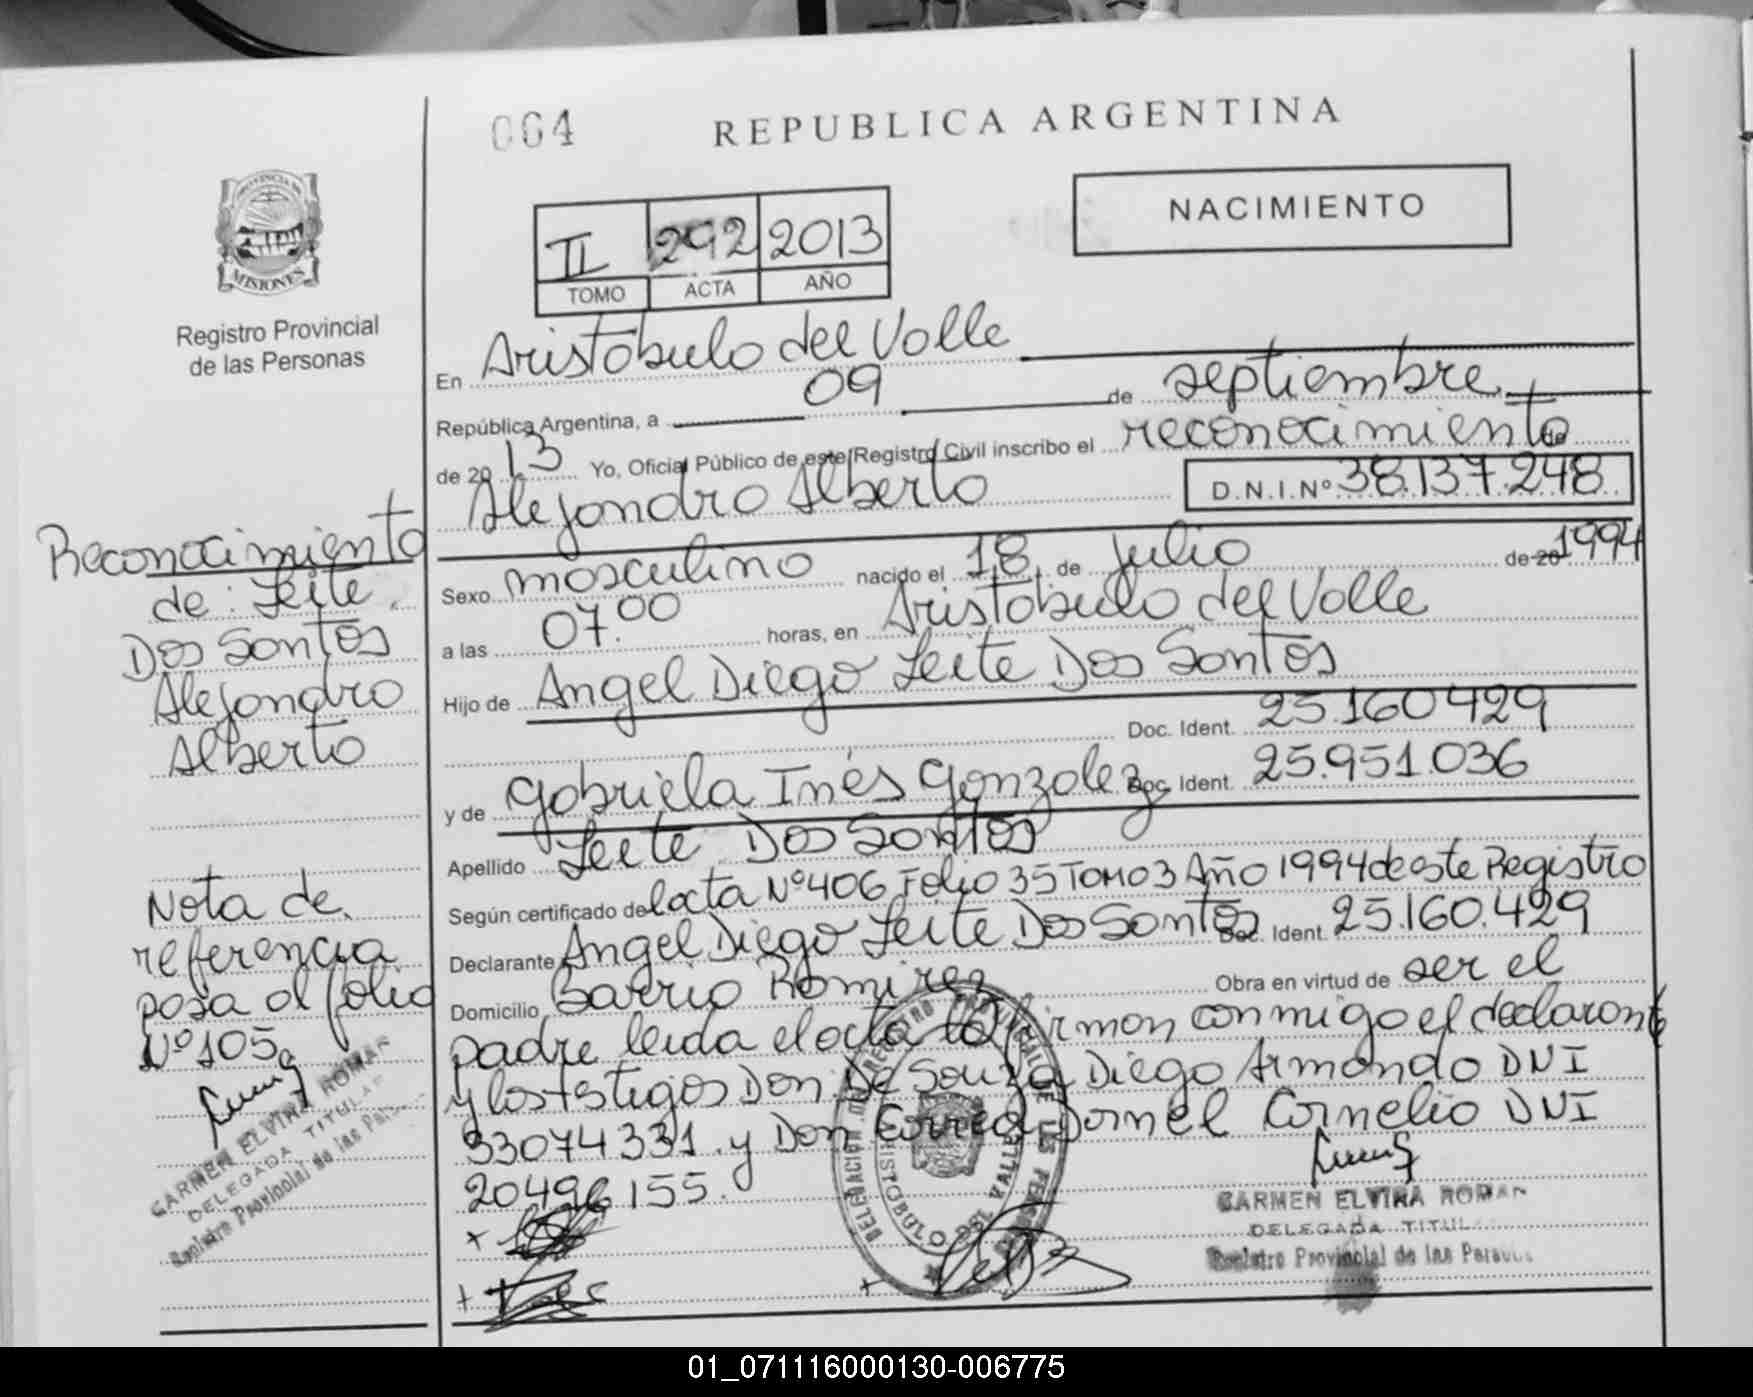 064
REPUBLICA ARGENTINA
PROVINCIA DE
MISIONES
Registro Provincial
de las Personas
II 292 2013
TOMO ACTA AÑO
NACIMIENTO
En Aristobulo del Valle
República Argentina, a 09 de septiembre
de 2013 Yo, Oficial Público de este Registro Civil inscribo el reconocimiento de
Alejandro Alberto D.N.I.Nº 38.137.248
Sexo masculino nacido el 18 de Julio de 20 1994
a las 07.00 horas, en Aristobulo del Valle
Hijo de Angel Diego Leite Dos Santos
Doc. Ident. 25.160429
y de Gabriela Inés Gonzalez Doc. Ident. 25.951.036
Apellido Leite Dos Santos
Según certificado de l acta Nº406 Folio 35 Tomo 3 Año 1994 de este Registro
Declarante Angel Diego Leite Dos Santos Doc. Ident. 25.160.429
Domicilio Barrio Ramirez Obra en virtud de ser el
padre leida el acta la firman conmigo el declarante
y los testigos Don De Souza Diego Armando DNI
33074331 y Don Correa Dornel Cornelio DNI
20496155.
CARMEN ELVIRA ROMAN
DELEGADA TITUL
Registro Provincial de las Personas
Reconocimiento
de: Leite
Dos Santos
Alejandro
Alberto
Nota de
referencia
pasa al folio
Nº 105
CARMEN ELVIRA ROMAN
DELEGADA TITULAR
Registro Provincial de las Per
DELEGACIÓN DEL REGISTRO PROVINCIAL DE LAS PERSONAS
ARISTOBULO DEL VALLE
01_071116000130-006775